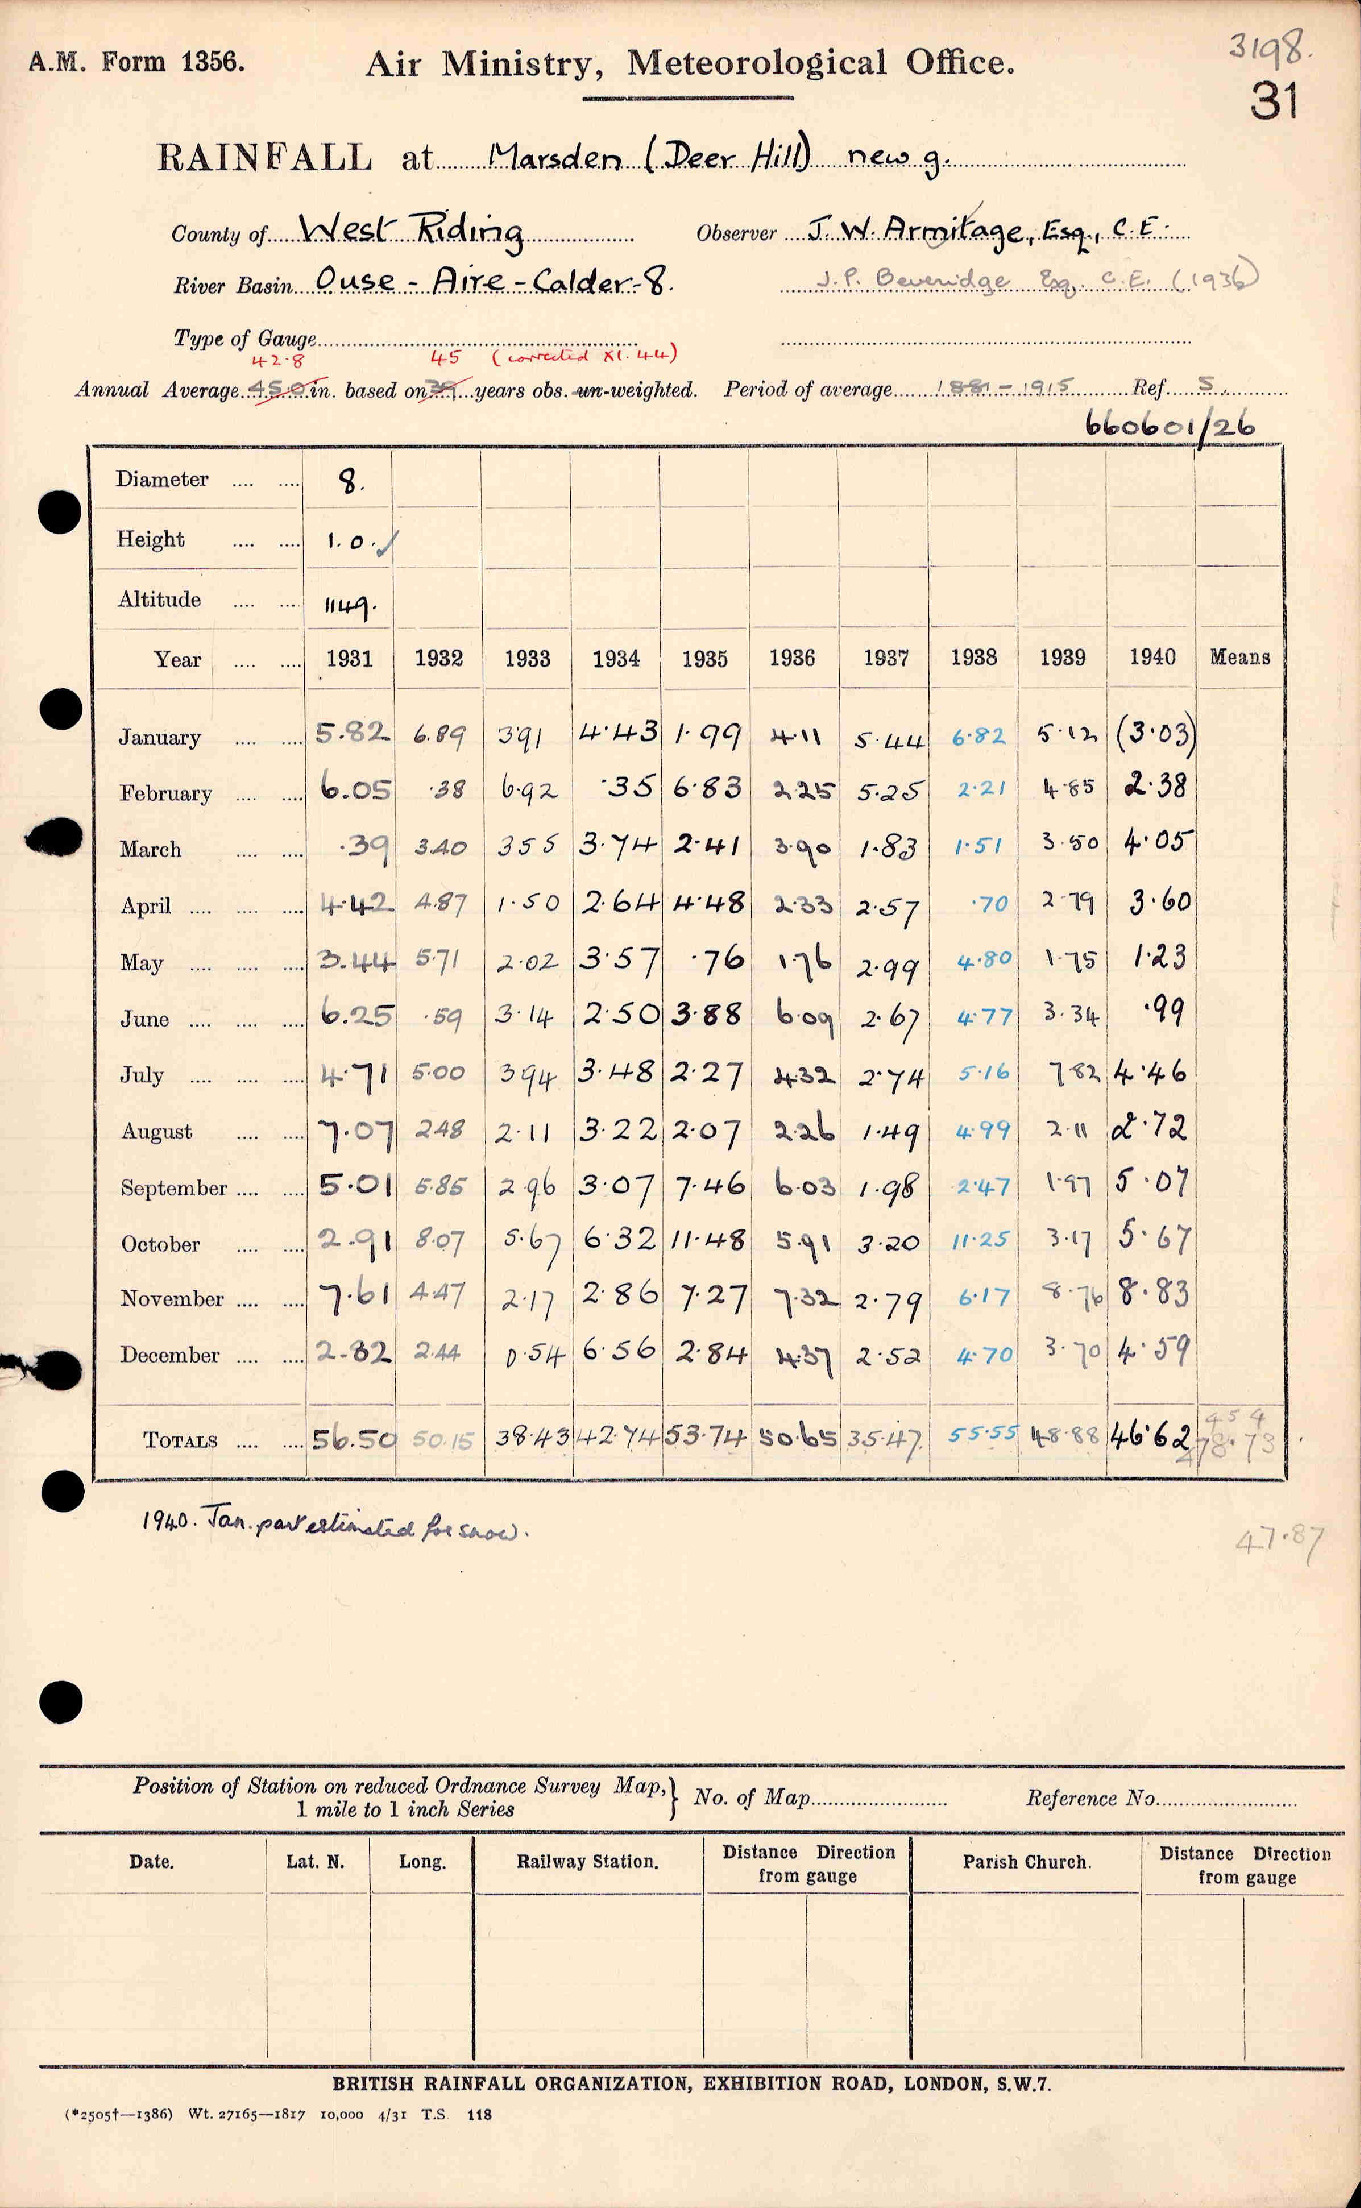 3198.
A.M. Form 1356.
Air Ministry, Meteorological Office.
31
RAINFALL at Marsden (Deer Hill) new g.
County of West Riding Observer J. W. Armitage, Esq., C.E.
River Basin Ouse - Aire - Calder - 8. J. P. Beveridge Esq. C.E. (1936)
Type of Gauge
42.8 45 (corrected XI.44)
Annual Average 45.0 in. based on years obs. un-weighted. Period of average 1881-1915 Ref. 5.
660601/26
Diameter .... .... 8.
Height .... .... 1.0. ✓
Altitude .... .... 1149.
Year .... .... 1931 1932 1933 1934 1935 1936 1937 1938 1939 1940 Means
January .... .... 5.82 6.89 3.91 4.43 1.99 4.11 5.44 6.82 5.12 (3.03)
February .... .... 6.05 .38 6.92 .35 6.83 2.25 5.25 2.21 4.85 2.38
March .... .... .39 3.40 3.55 3.74 2.41 3.90 1.83 1.51 3.50 4.05
April .... .... .... 4.42 4.87 1.50 2.64 4.48 2.33 2.57 .70 2.79 3.60
May .... .... .... 3.44 5.71 2.02 3.57 .76 1.76 2.99 4.80 1.75 1.23
June .... .... .... 6.25 .59 3.14 2.50 3.88 6.09 2.67 4.77 3.34 .99
July .... .... .... 4.71 5.00 3.94 3.48 2.27 4.32 2.74 5.16 7.82 4.46
August .... .... 7.07 2.48 2.11 3.22 2.07 2.26 1.49 4.99 2.11 2.72
September .... .... 5.01 5.85 2.96 3.07 7.46 6.03 1.98 2.47 1.97 5.07
October .... .... 2.91 8.07 5.67 6.32 11.48 5.91 3.20 11.25 3.17 5.67
November .... .... 7.61 4.47 2.17 2.86 7.27 7.32 2.79 6.17 8.76 8.83
December .... .... 2.82 2.44 0.54 6.56 2.84 4.37 2.52 4.70 3.70 4.59
TOTALS .... .... 56.50 50.15 38.43 42.74 53.74 50.65 35.47 55.55 48.88 46.62 478.73
1940. Jan. part estimated for snow.
47.87
Position of Station on reduced Ordnance Survey Map,} No. of Map Reference No.
1 mile to 1 inch Series
Date. Lat. N. Long. Railway Station. Distance Direction from gauge Parish Church. Distance Direction from gauge
BRITISH RAINFALL ORGANIZATION, EXHIBITION ROAD, LONDON, S.W.7.
(*2505†—1386) Wt. 27165—1817 10,000 4/31 T.S. 118